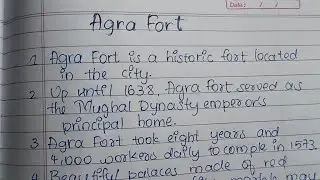 Date: / /
Agra Fort
1 Agra Fort is a historic fort located
in the city.
2 Up until 1638, Agra fort served as
the Mughal Dynasty emperor's
principal home.
3 Agra Fort took eight years and
4,000 workers daily to comple in 1573.
4 Beautiful palaces made of red